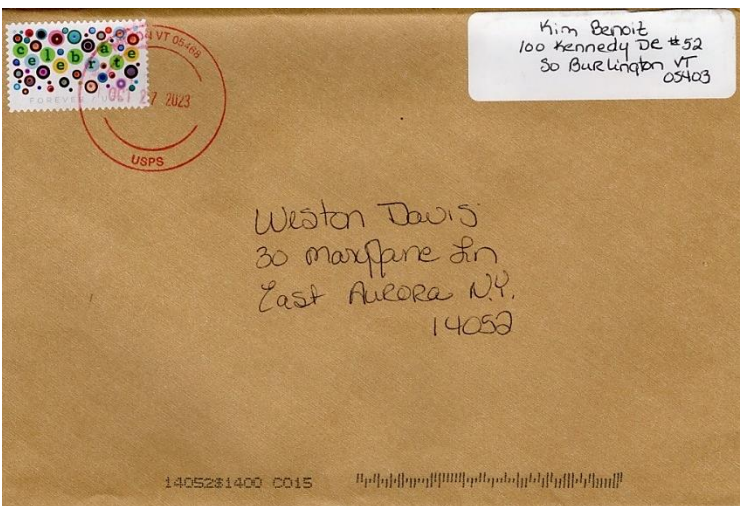 celebrate
FOREVER / U
ON VT 05468
OCT 27 2023
USPS
Kim Benoit
100 Kennedy De #52
So Burlington VT
05403
Weston Davis
30 Maryjane Ln
East Aurora N.Y.
14052
14052$1400 C015